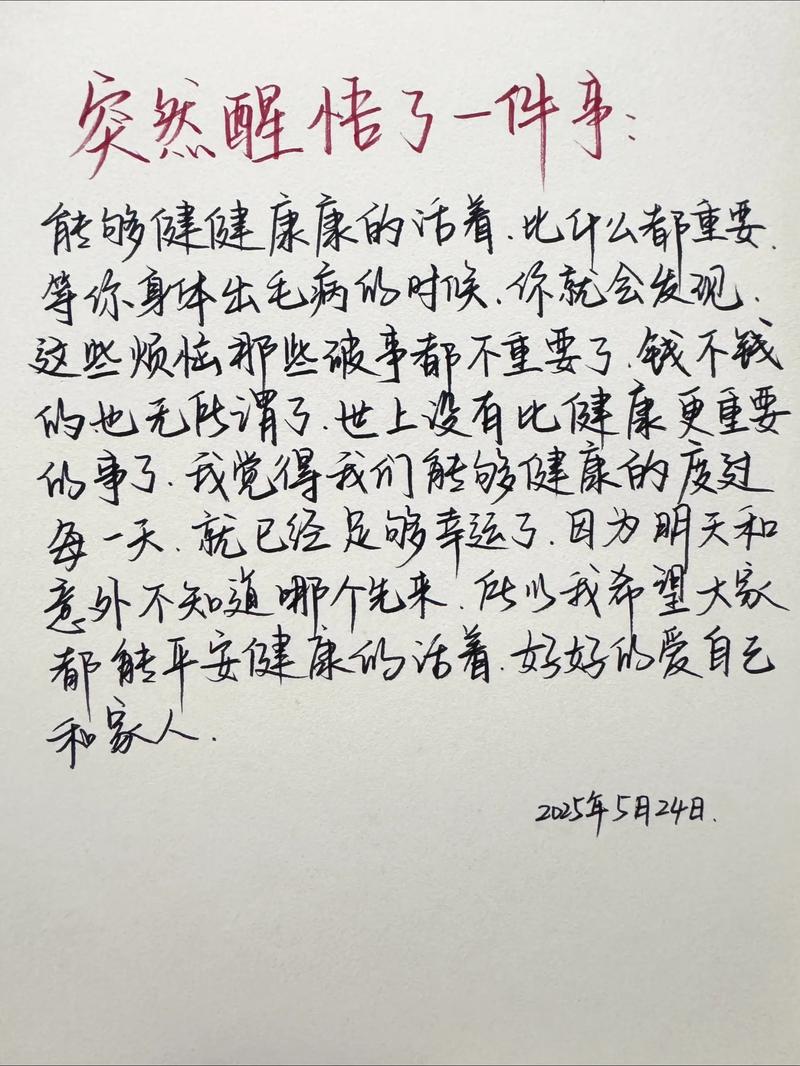 突然醒悟了一件事:
能够健健康康的活着.比什么都重要.
等你身体出毛病的时候.你就会发现.
这些烦恼那些破事都不重要了.钱不钱
的.也无所谓了.世上没有比健康更重要
的事了.我觉得我们能够健康的度过
每一天.就已经足够幸运了.因为明天和
意外不知道哪个先来.所以我希望大家
都能平安健康的活着.好好的爱自己
和家人.
2025年5月24日.